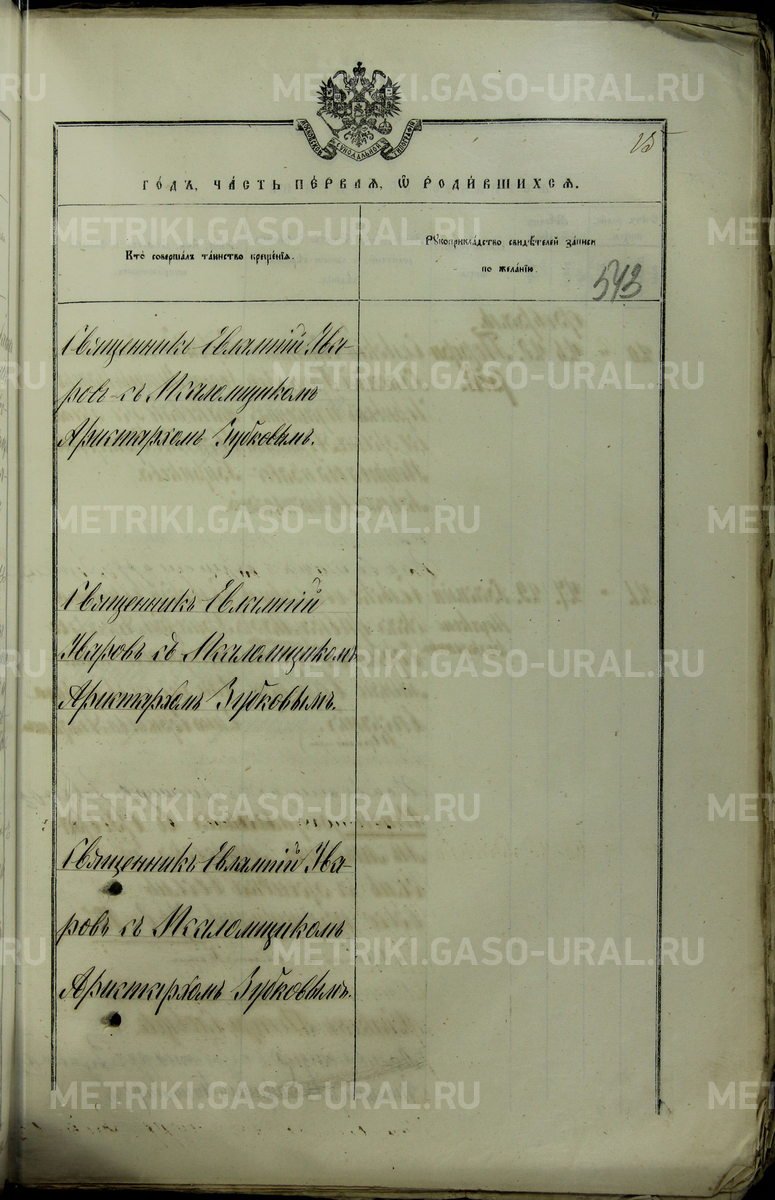 METRIKI.GASO-URAL.RU
МОСКОВСКОЙ СѴНОДАЛЬНОЙ ТИПОГРАФІИ
15
го́дъ, ча́сть пе́рваѧ, ѡ҆ роди́вшихсѧ.
Кто̀ соверша́лъ та́инство креще́нїѧ.
Рꙋкоприкла́дство свидѣ́телей за́писи
по жела́нїю.
543
Священникъ Евлампій Ува-
ровъ съ Псаломщикомъ
Аристархомъ Зубковымъ.
Священникъ Евлампій
Уваровъ съ Псаломщикомъ
Аристархомъ Зубковымъ.
Священникъ Евлампій Ува-
ровъ съ Псаломщикомъ
Аристархомъ Зубковымъ.